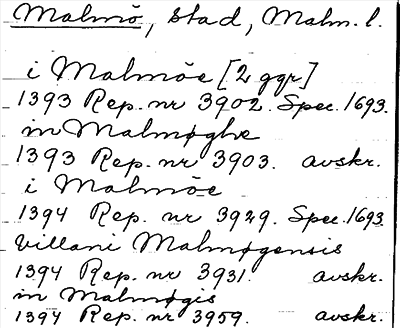 Malmö, stad, Malm. l.
i Malmöe [2 ggr]
1393 Rep. nr 3902. Spec. 1693.
in Malmøghæ
1393 Rep. nr 3903. avskr.
i Malmöe
1394 Rep. nr 3929. Spec. 1693
villani Malmøgensis
1394 Rep. nr 3931. avskr.
in Malmøgis
1394 Rep. nr 3959. avskr.